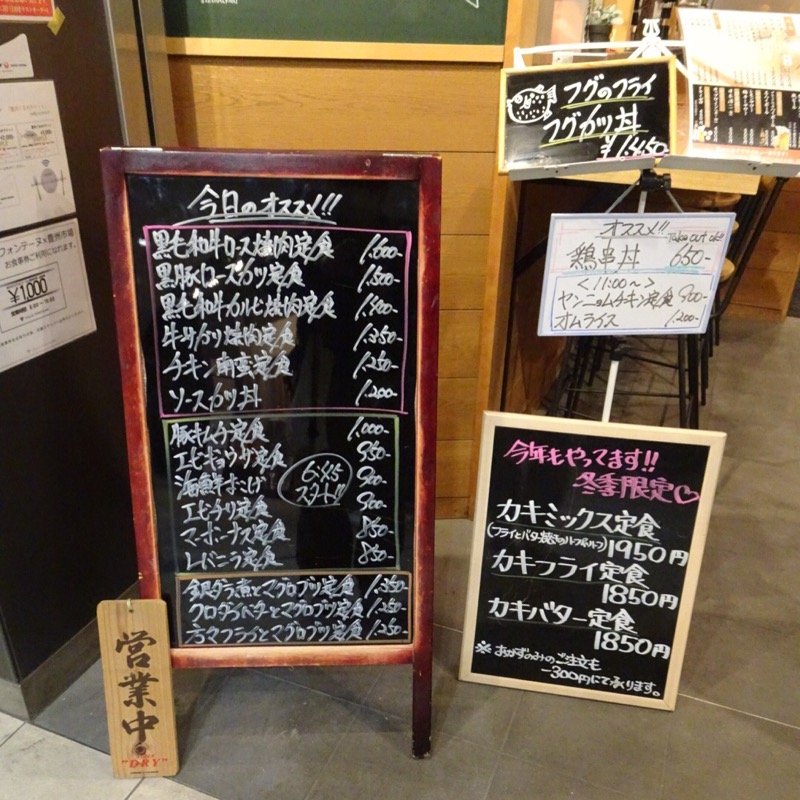 フォンテーヌ×豊洲市場
お食事券ご利用になれます。
¥1,000
今日のオススメ!!
黒毛和牛ロース焼肉定食 1.600-
黒豚ロースカツ定食 1.500-
黒毛和牛カルビ焼肉定食 1.400-
牛サガリ焼肉定食 1.350-
チキン南蛮定食 1.250-
ソースカツ丼 1.200-
豚キムチ定食 1.000-
エビギョウザ定食 950-
海鮮おこげ 900-
エビチリ定食 900-
マーボーナス定食 850-
レバニラ定食 850-
6:45
スタート!!
銀ダラ煮とマグロブツ定食 1.350-
クロダイバターとマグロブツ定食 1.250-
フライとマグロブツ定食 1.250-
営業中
"DRY"
フグのフライ
フグカツ丼
¥1,450
オススメ!!
Take out ok!!
鶏串丼 650-
<11:00~>
ヤンニョムチキン定食 900-
オムライス 1.200-
今年もやってます!!
冬季限定♡
カキミックス定食
(フライとバター焼きのハーフ&ハーフ) 1950円
カキフライ定食
1850円
カキバター定食
1850円
※おかずのみのご注文も
-300円にて承ります。